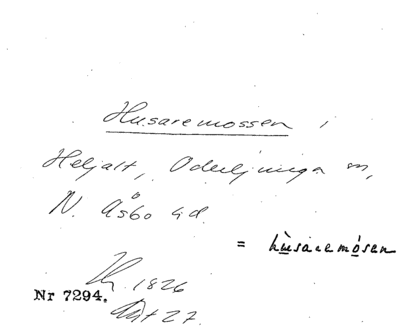 Husaremossen i
Heljalt, Oderljunga sn,
N. Åsbo hd.
= hùsaremósen
1826
Nr 7294.
27.